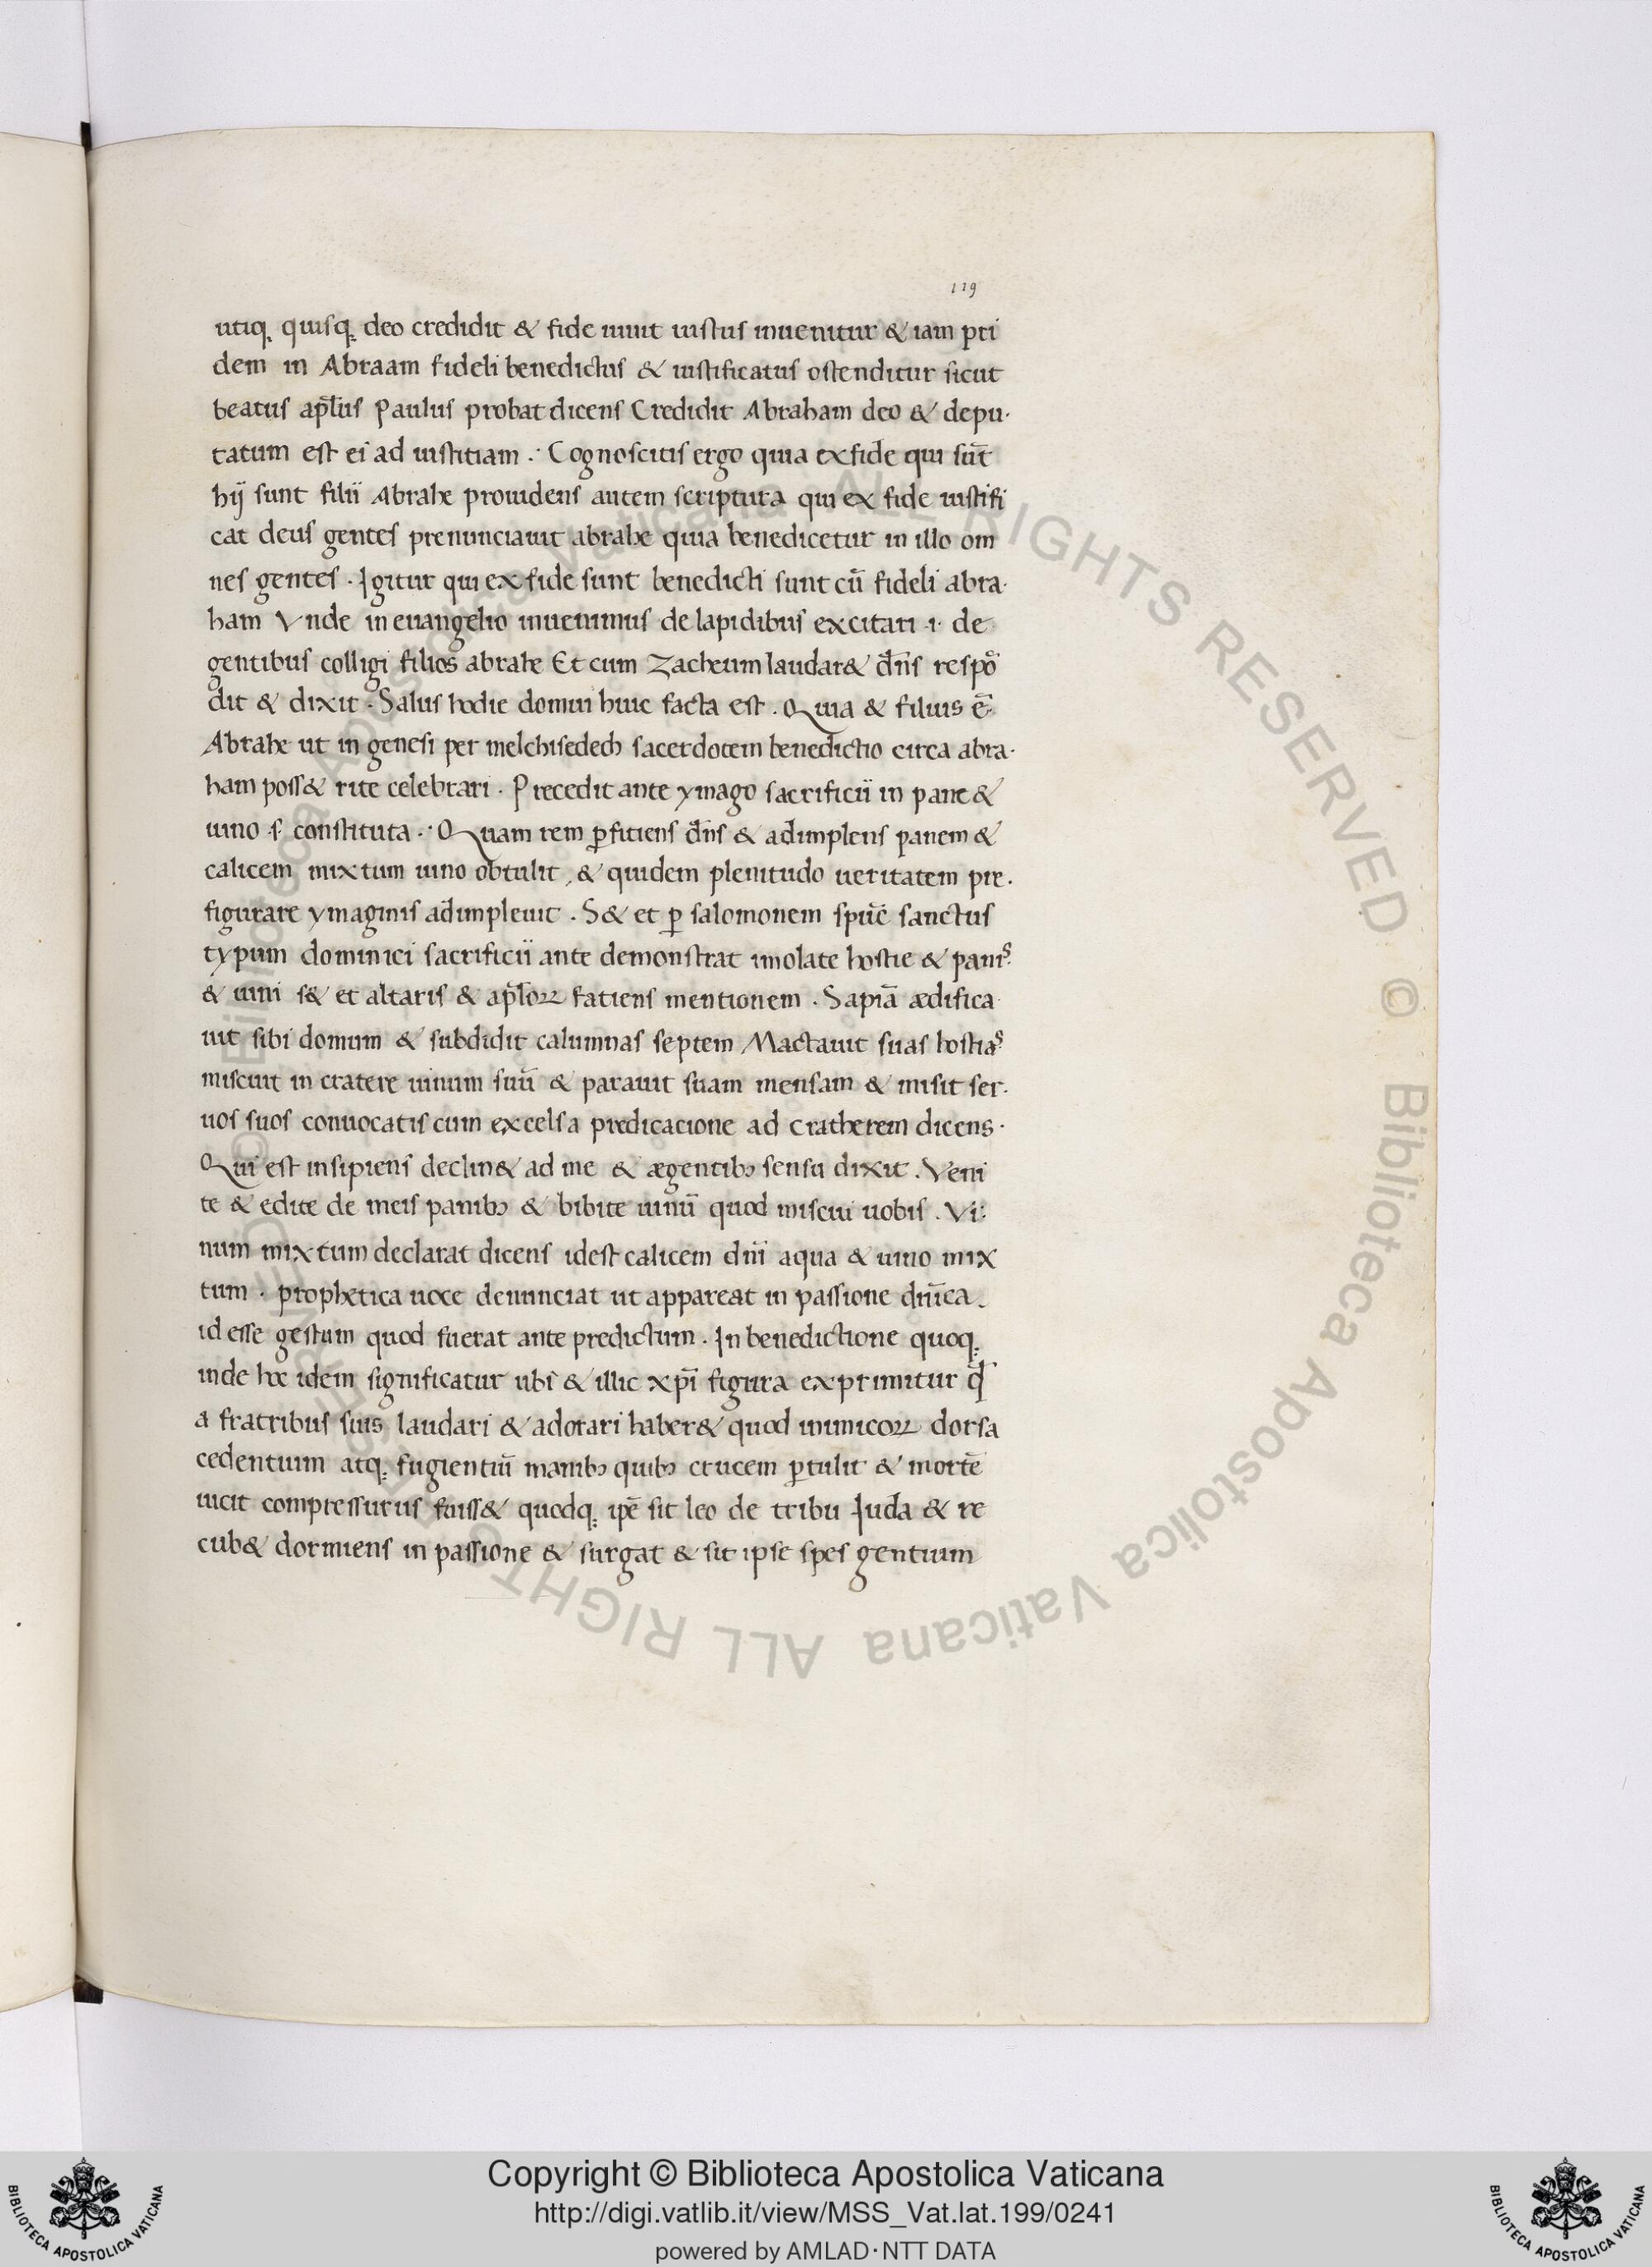 119
utiq; quisq; deo credidit & fide uiuit iustus inuenitur & iam pri
dem in Abraam fideli benedictus & iustificatus ostenditur sicut
beatus apl̄us Paulus probat dicens Credidit Abraham deo & depu·
tatum est ei ad iustitiam ·: Cognoscitis ergo quia ex fide qui sūt
hij sunt filii Abrahe prouidens autem scriptura qui ex fide iustifi
cat deus gentes prenunciauit abrahe quia benedicetur in illo om
nes gentes · Igitur qui ex fide sunt benedicti sunt cū fideli abra·
ham Vnde in euangelio inuenimus de lapidibus excitari ·i· de
gentibus colligi filios abrahe Et cum Zacheum laudar& dn̄s respō
dit & dixit · Salus hodie domui huic facta est · Quia & filius ē
Abrahe ut in genesi per melchisedech sacerdotem benedictio circa abra·
ham poss& rite celebrari · Precedit ante ymago sacrificii in pane &
uino ·s· constituta ·: Quam rem ꝑfitiens dn̄s & adimplens panem &
calicem mixtum uino obtulit , & quidem plenitudo ueritatem pre·
figurare ymaginis adimpleuit · S& et ꝑ salomonem spūc sanctus
typum dominici sacrificii ante demonstrat imolate hostie & panis
& uini s& et altaris & apl̄oꝝ fatiens mentionem · Sapiā ædifica
uit sibi domum & subdidit calumnas septem Mactauit suas hostias
miscuit in cratere uinum suū & parauit suam mensam & misit ser·
uos suos conuocatis cum excelsa predicacione ad cratherem dicens ·
Qui est insipiens declin& ad me & ægentibꝫ sensu dixit . Veni
te & edite de meis panibꝫ & bibite uinū quod miscui uobis . Vi:
num mixtum declarat dicens idest calicem dn̄i aqua & uino mix
tum · prophetica uoce denunciat ut appareat in passione dn̄ica .
id esse gestum quod fuerat ante predictum · In benedictione quoq;
inde hoc idem significatur ubi & illic xp̄i figura exprimitur qđ
a fratribus suis laudari & adorari haber& quod inimicoꝝ dorsa
cedentuim atq; fugientiū manibꝫ quibꝫ crucem ꝑtulit & mortē
uicit compressurus fuiss& quodq; ip̄e sit leo de tribu Iuda & re
cub& dormiens in passione & surgat & sit ipse spes gentium
© Biblioteca Apostolica Vaticana ALL RIGHTS RESERVED © Biblioteca Apostolica Vaticana ALL RIGHTS RESERVED
Copyright © Biblioteca Apostolica Vaticana
http://digi.vatlib.it/view/MSS_Vat.lat.199/0241
powered by AMLAD·NTT DATA
BIBLIOTECA APOSTOLICA VATICANA
BIBLIOTECA APOSTOLICA VATICANA